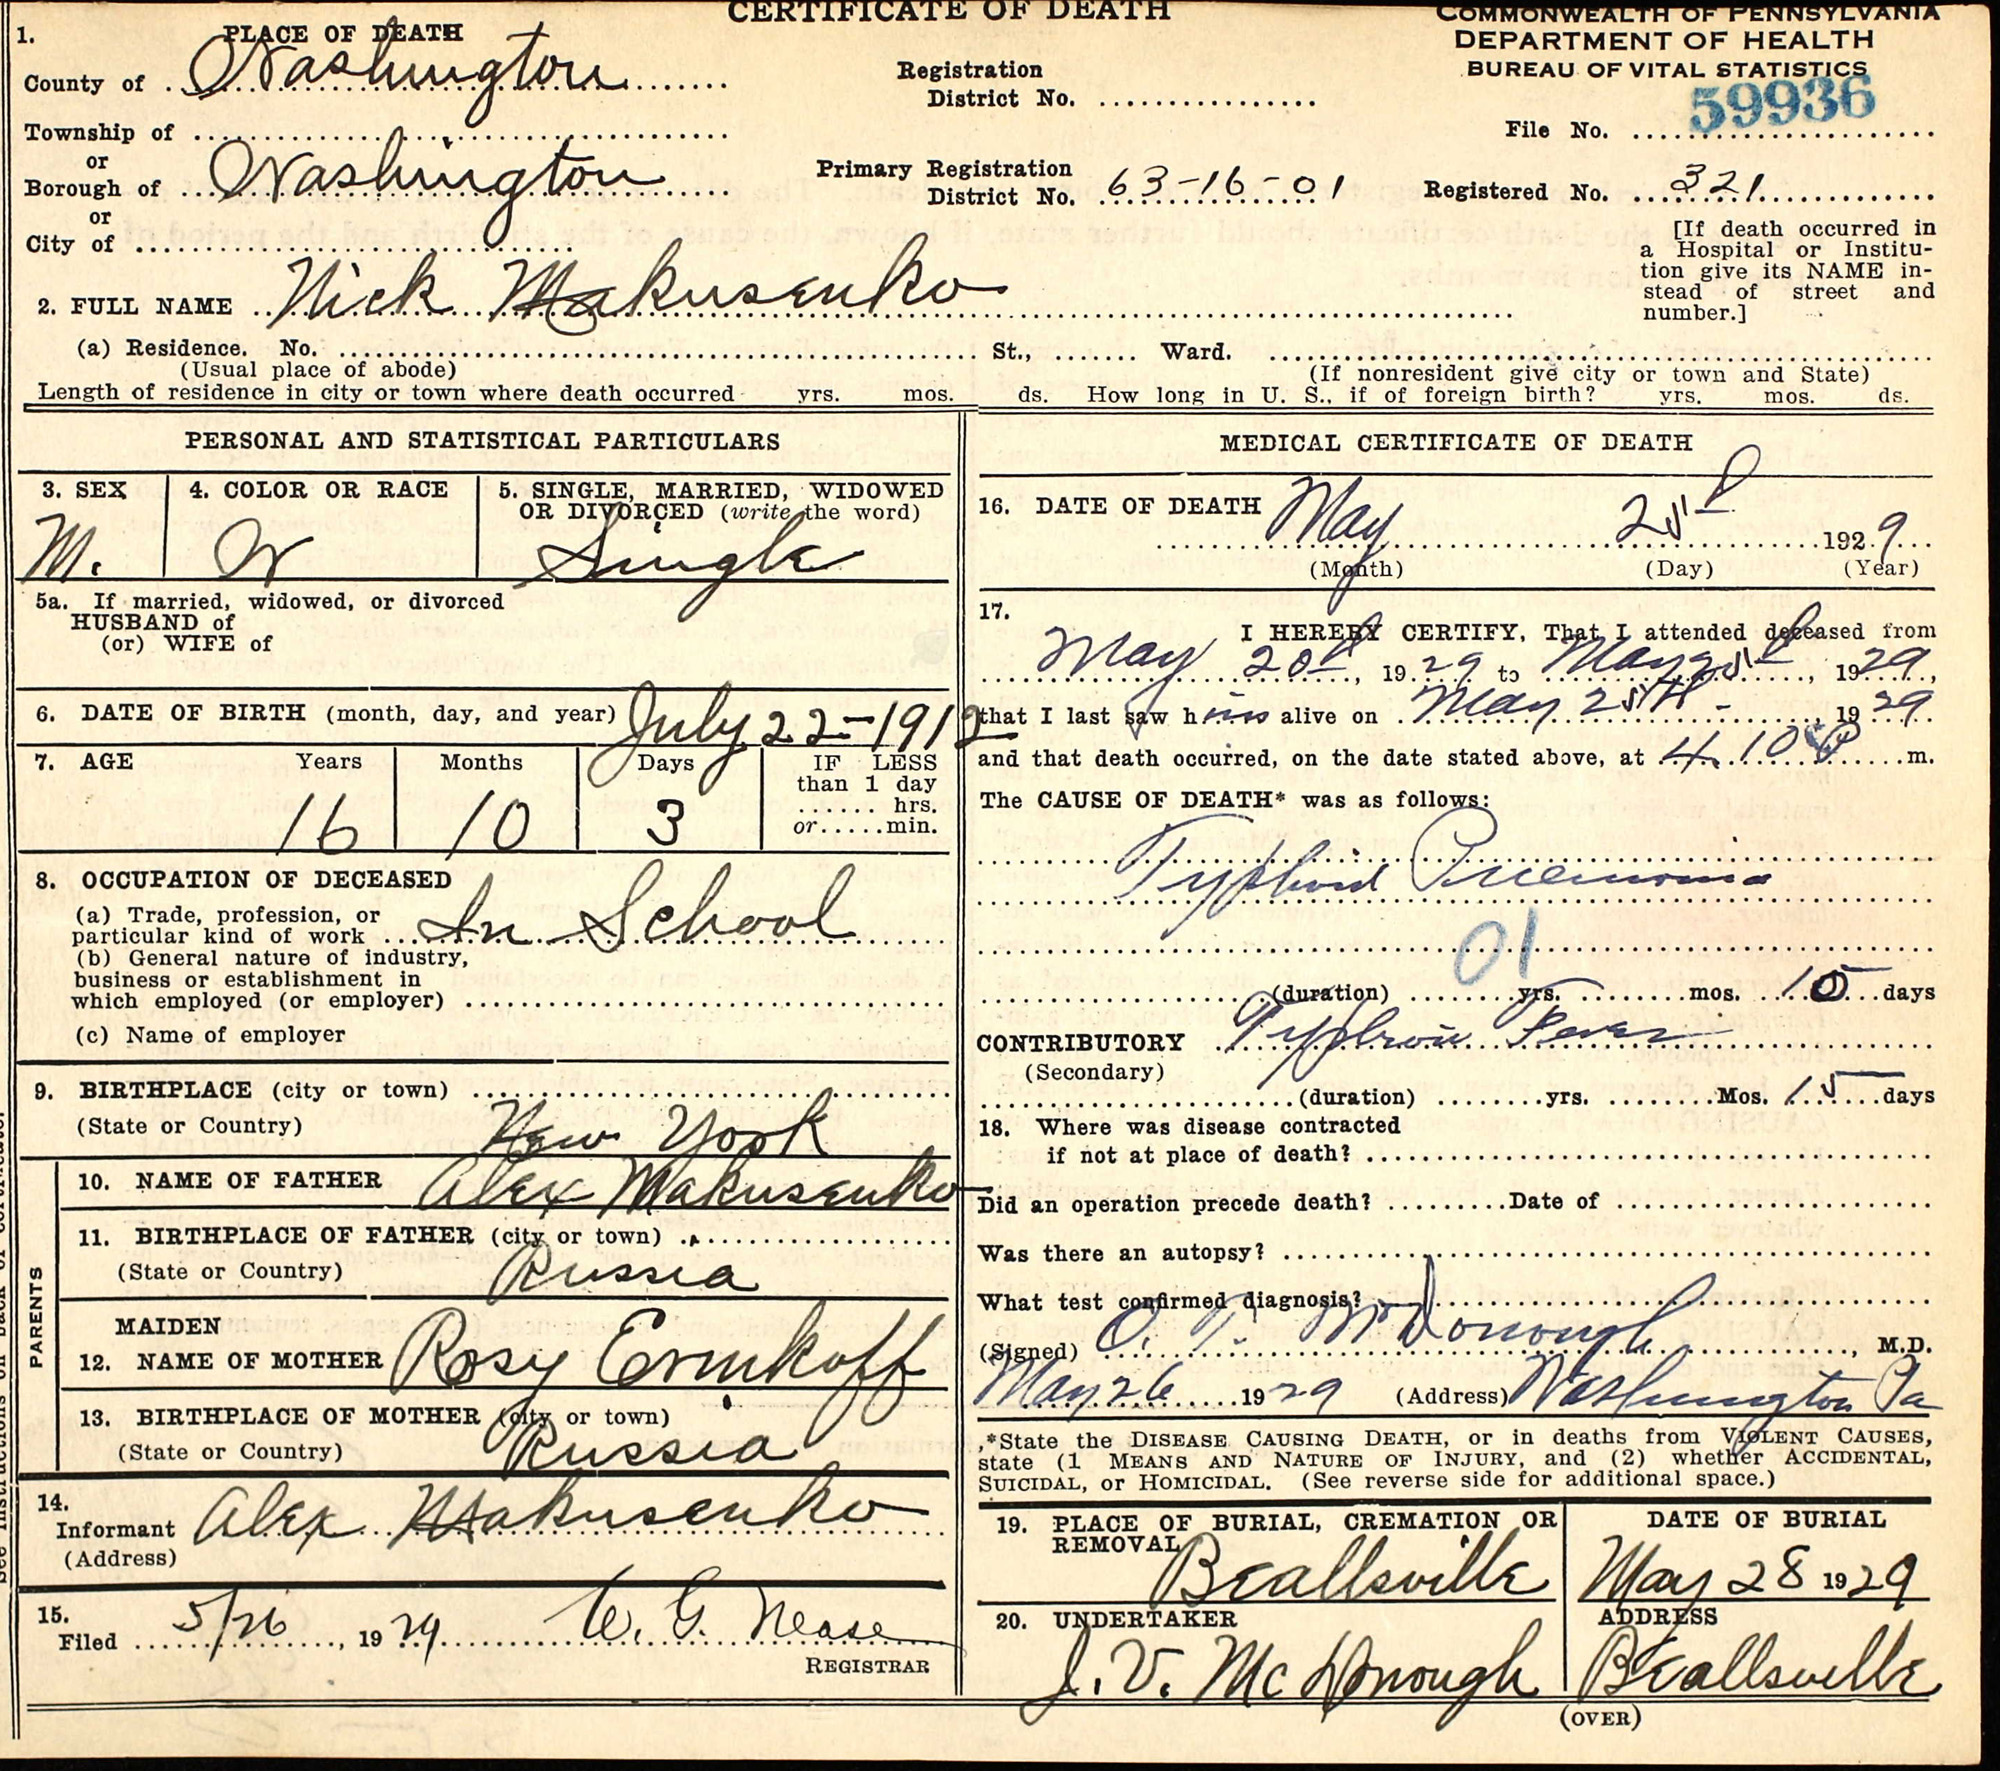 CERTIFICATE OF DEATH
COMMONWEALTH OF PENNSYLVANIA
DEPARTMENT OF HEALTH
BUREAU OF VITAL STATISTICS
1. PLACE OF DEATH
County of Washington
Registration District No.
File No. 59936
Township of
or
Borough of Washington
Primary Registration District No. 63-16-01
Registered No. 321
or
City of
[If death occurred in
a Hospital or Institu-
tion give its NAME in-
stead of street and
number.]
2. FULL NAME Nick Makusenko
(a) Residence. No. St., Ward.
(Usual place of abode) (If nonresident give city or town and State)
Length of residence in city or town where death occurred yrs. mos. ds. How long in U. S., if of foreign birth? yrs. mos. ds.
PERSONAL AND STATISTICAL PARTICULARS
3. SEX
M.
4. COLOR OR RACE
W
5. SINGLE, MARRIED, WIDOWED
OR DIVORCED (write the word)
Single
5a. If married, widowed, or divorced
HUSBAND of
(or) WIFE of
6. DATE OF BIRTH (month, day, and year) July 22-1912
7. AGE Years Months Days
16 10 3
IF LESS
than 1 day
hrs.
or min.
8. OCCUPATION OF DECEASED
(a) Trade, profession, or
particular kind of work In School
(b) General nature of industry,
business or establishment in
which employed (or employer)
(c) Name of employer
9. BIRTHPLACE (city or town)
(State or Country) New York
PARENTS
10. NAME OF FATHER Alex Makusenko
11. BIRTHPLACE OF FATHER (city or town)
(State or Country) Russia
MAIDEN
12. NAME OF MOTHER Rosy Ermkoff
13. BIRTHPLACE OF MOTHER (city or town)
(State or Country) Russia
14.
Informant Alex Makusenko
(Address)
15.
Filed 5/26, 1929 W. G. Nease
REGISTRAR
MEDICAL CERTIFICATE OF DEATH
16. DATE OF DEATH May 25th 1929
(Month) (Day) (Year)
17.
I HEREBY CERTIFY, That I attended deceased from
May 20th, 1929 to May 25th, 1929,
that I last saw him alive on May 25th, 1929
and that death occurred, on the date stated above, at 4.10 P m.
The CAUSE OF DEATH* was as follows:
Typhoid Pneumonia
01
(duration) yrs. mos. 15 days
CONTRIBUTORY Typhoid Fever
(Secondary)
(duration) yrs. Mos. 15 days
18. Where was disease contracted
if not at place of death?
Did an operation precede death? Date of
Was there an autopsy?
What test confirmed diagnosis?
(Signed) O. T. McDonough, M.D.
May 26 1929 (Address) Washington Pa
*State the DISEASE CAUSING DEATH, or in deaths from VIOLENT CAUSES,
state (1 MEANS AND NATURE OF INJURY, and (2) whether ACCIDENTAL,
SUICIDAL, or HOMICIDAL. (See reverse side for additional space.)
19. PLACE OF BURIAL, CREMATION OR
REMOVAL
Beallsville
DATE OF BURIAL
May 28 1929
20. UNDERTAKER
J. V. McDonough
ADDRESS
Beallsville
(OVER)